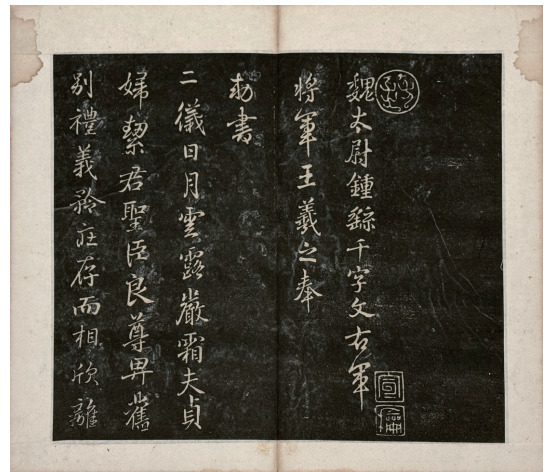 魏太尉鍾繇千字文右軍
将軍王羲之奉
勅書
二儀日月雲露嚴霜夫貞
婦絜君聖臣良尊卑舊
別禮義矜莊存而相欣離